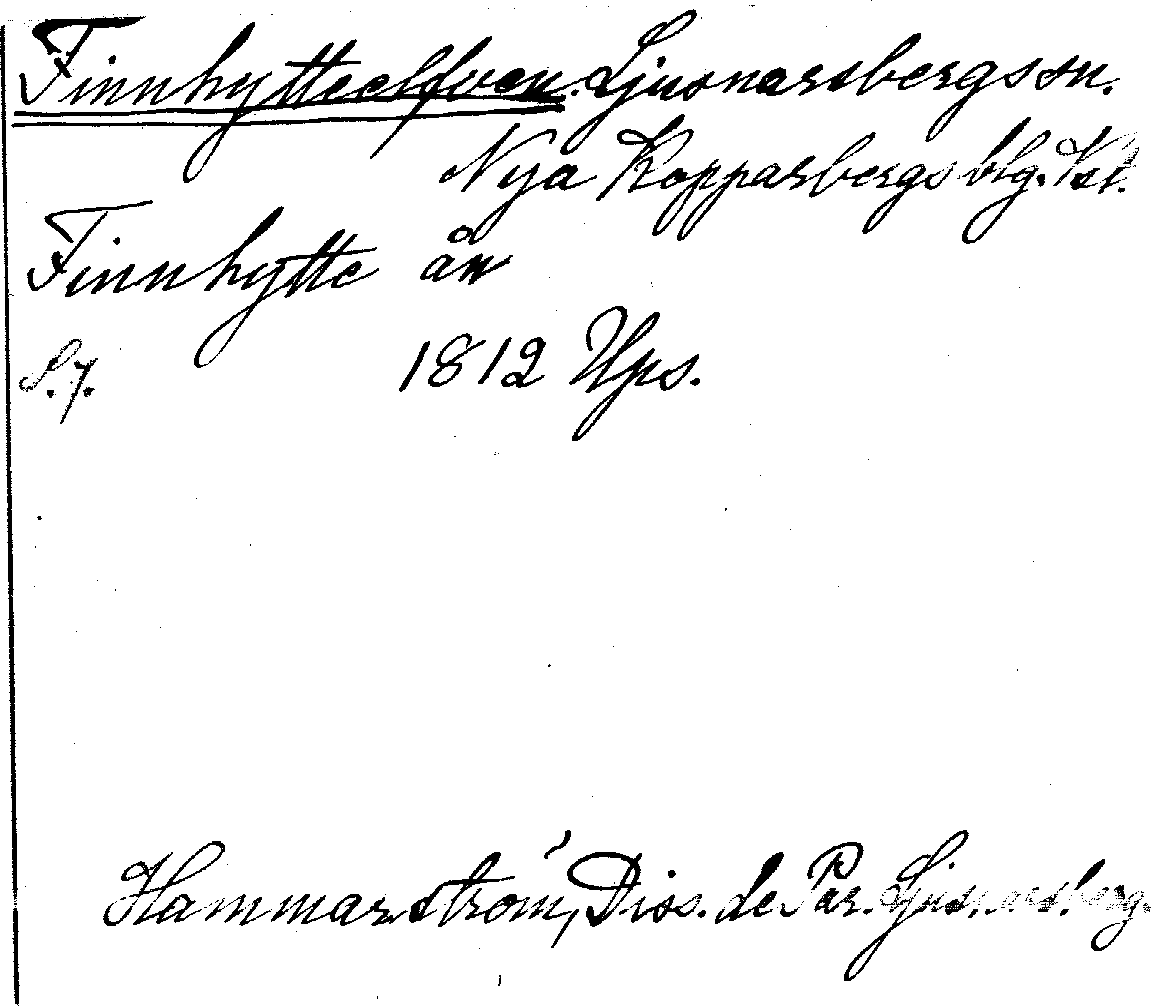 Finnhytteelfven. Ljusnarsbergs sn.
Nya Kopparbergs blg. Vstl.
Finnhytte ån
S. 7. 1812 Ups.
Hammarström, Diss. de Par. Ljusnarsberg.